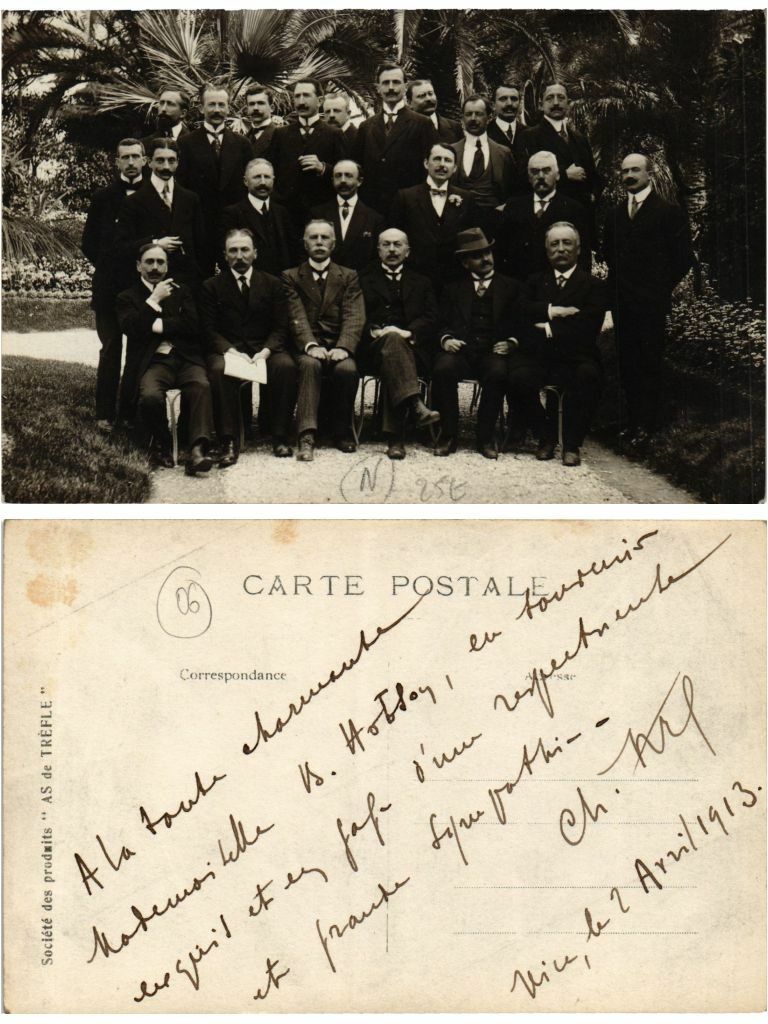 (N) 25E
06
CARTE POSTALE
Correspondance
Adresse
Société des produits " AS de TRÈFLE "
A la toute charmante
Mademoiselle B. en souvenir
exquis et en gage d'une respectueuse
et grande sympathie --
Ch.
Nice, le 2 Avril 1913.